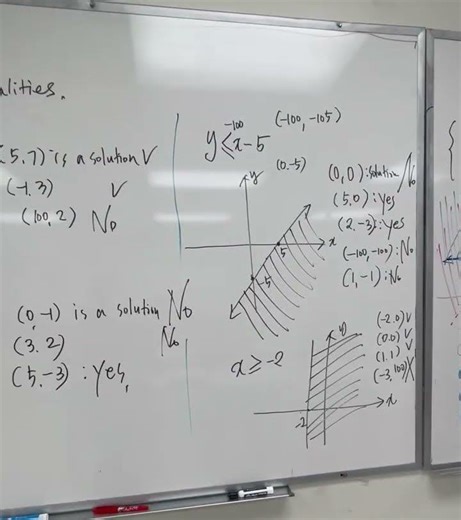 alities.
(5,7) is a solution V
(-1,3) V
(100,2) No
(0,-1) is a solution No
(3.2) No
(5,-3) : Yes,
-100
y ≤ x-5
(-100, -105)
(0,-5)
y
x
5
-5
(0,0) : solution / No
(5,0) : yes
(2,-3) : yes
(-100,-100) : No
(1,-1) : No
x ≥ -2
x
-2
(-2,0) V
(0,0) V
(1,1) V
(-3,100) X
{